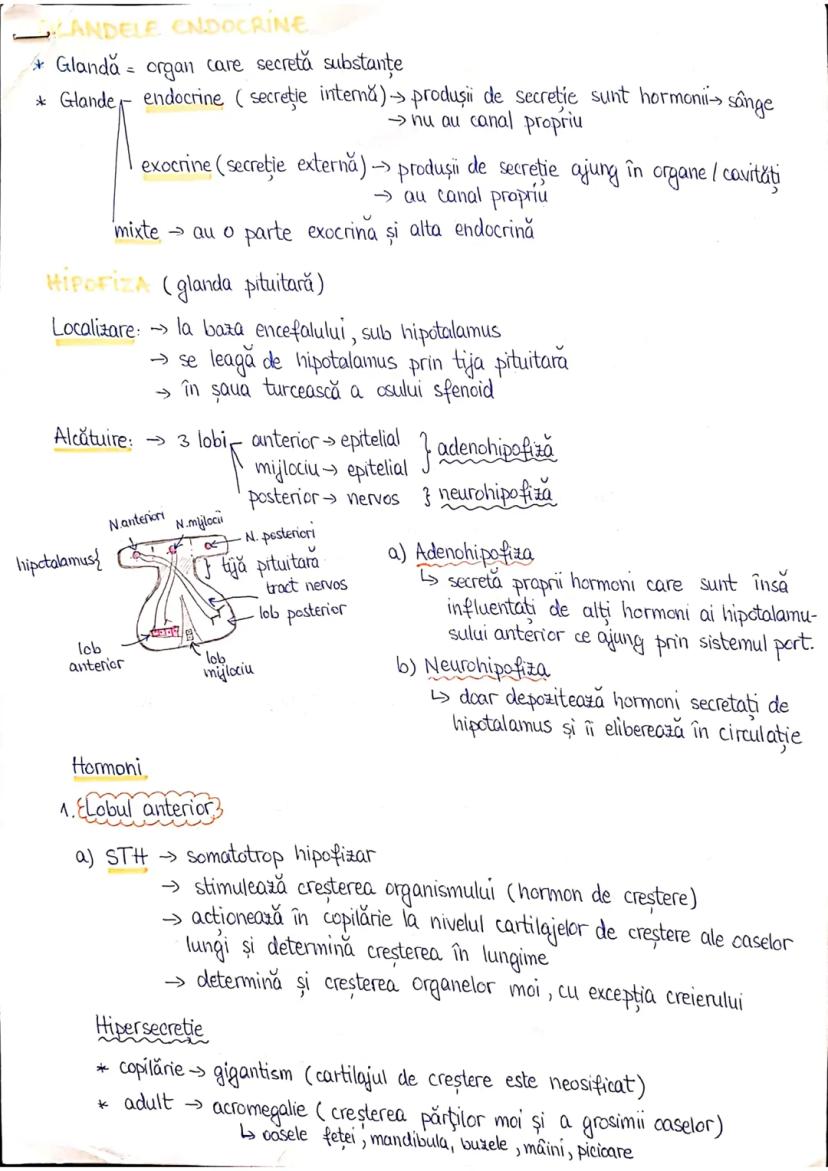 GLANDELE ENDOCRINE
* Glandă = organ care secretă substanțe
* Glande endocrine (secreție internă) → produșii de secreție sunt hormonii → sânge
→ nu au canal propriu
exocrine (secreție externă) → produșii de secreție ajung în organe / cavități
→ au canal propriu
mixte → au o parte exocrină și alta endocrină
HIPOFIZA (glanda pituitară)
Localizare: → la baza encefalului, sub hipotalamus
→ se leagă de hipotalamus prin tija pituitară
→ în șaua turcească a osului sfenoid
Alcătuire: → 3 lobi anterior → epitelial } adenohipofiză
mijlociu → epitelial
posterior → nervos } neurohipofiză
N.anteriori N.mijlocii
N. posteriori
hipotalamus {
} tijă pituitară
tract nervos
lob posterior
lob anterior
lob mijlociu
a) Adenohipofiza
↳ secretă proprii hormoni care sunt însă
influentați de alți hormoni ai hipotalamu-
sului anterior ce ajung prin sistemul port.
b) Neurohipofiza
↳ doar depozitează hormoni secretați de
hipotalamus și îi eliberează în circulație
Hormoni
1. Lobul anterior
a) STH → somatotrop hipofizar
→ stimulează creșterea organismului (hormon de creștere)
→ acționează în copilărie la nivelul cartilajelor de creștere ale oaselor
lungi și determină creșterea în lungime
→ determină și creșterea organelor moi, cu excepția creierului
Hipersecreție
* copilărie → gigantism (cartilajul de creștere este neosificat)
* adult → acromegalie (creșterea părților moi și a grosimii oaselor)
↳ oasele feței, mandibula, buzele, mâini, picioare